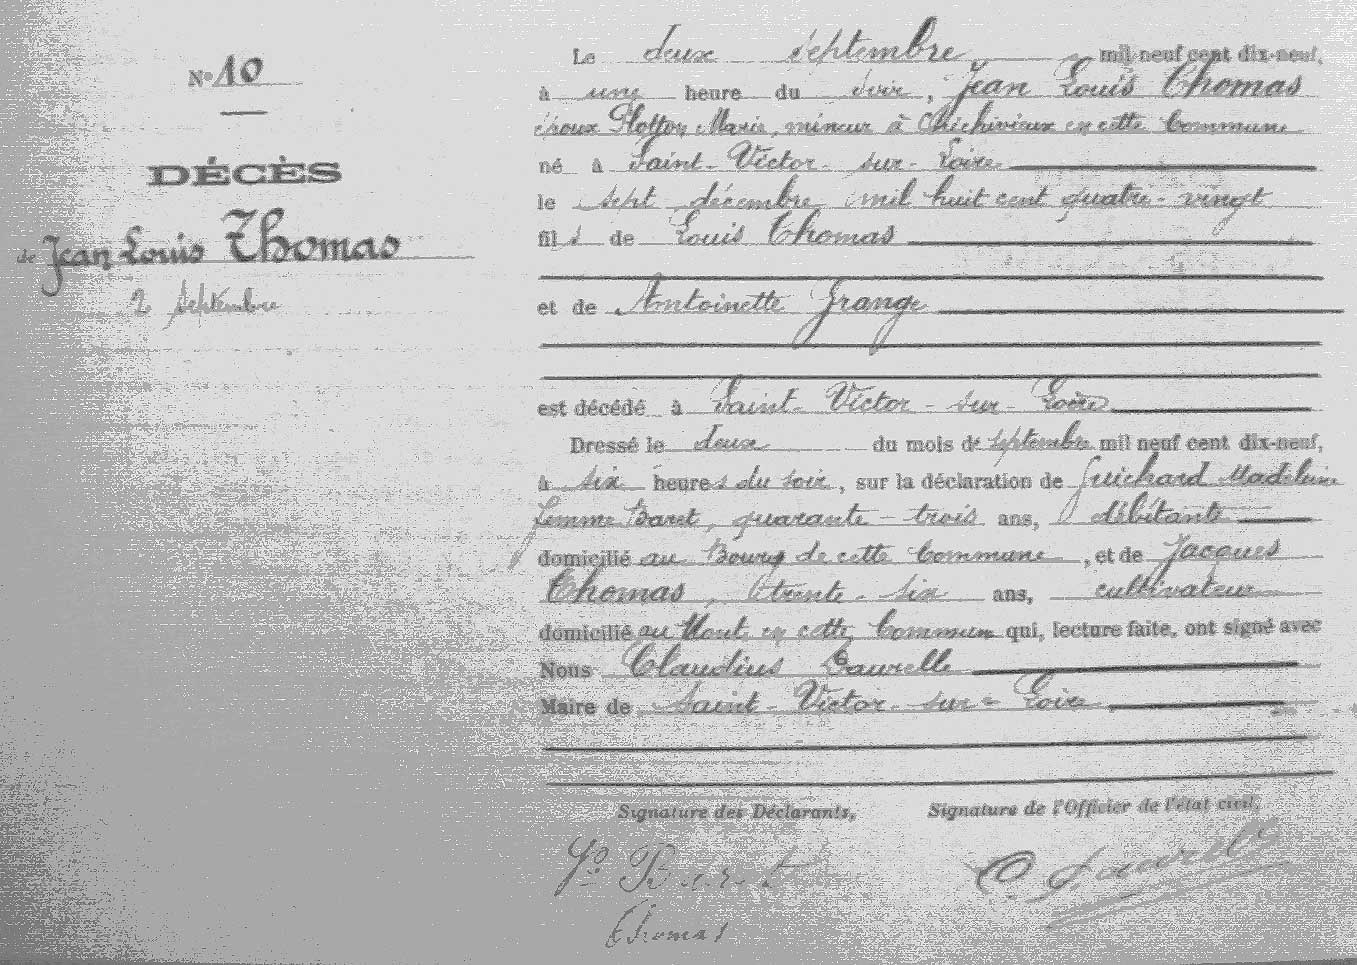 Nº 10
DÉCÈS
de Jean Louis Thomas
2 septembre
Le deux septembre mil neuf cent dix-neuf,
à une heure du soir, Jean Louis Thomas
époux Marie, mineur à en cette Commune
né à Saint-Victor-sur-Loire
le sept décembre mil huit cent quatre-vingt
fils de Louis Thomas
et de Antoinette Grange
est décédé à Saint-Victor-sur-Loire
Dressé le deux du mois de septembre mil neuf cent dix-neuf,
à six heures du soir, sur la déclaration de Guichard Madeleine
femme Baret, quarante-trois ans, débitante
domicilié au Bourg de cette Commune, et de Jacques
Thomas, trente-six ans, cultivateur
domicilié au en cette Commune qui, lecture faite, ont signé avec
Nous Claudius
Maire de Saint-Victor-sur-Loire
Signature des Déclarants, Signature de l'Officier de l'état civil,
Baret
Thomas